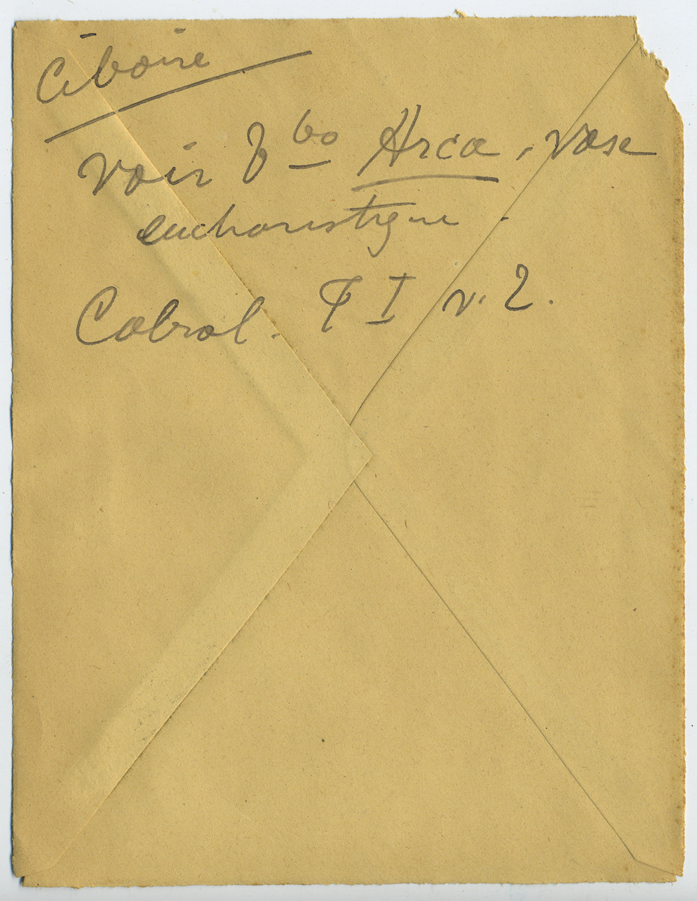 Ciboire
voir Vbo Arca, vase
eucharistique.
Cabrol. T I v. 2.